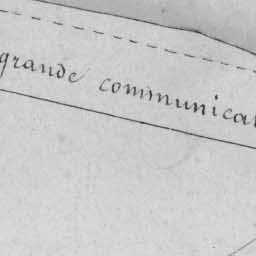 grande communicat